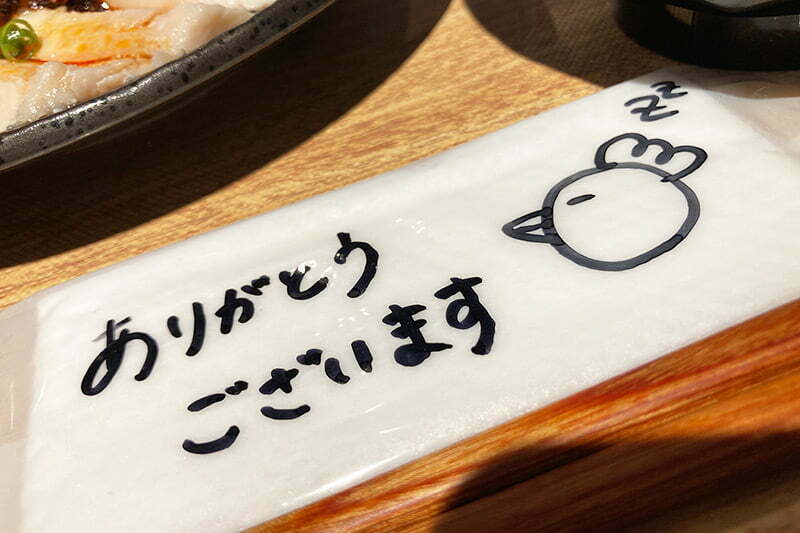 ありがとう
ございます
zzz